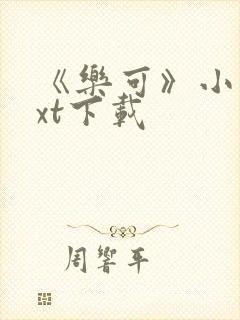 《樂可》小
xt下載
周響平